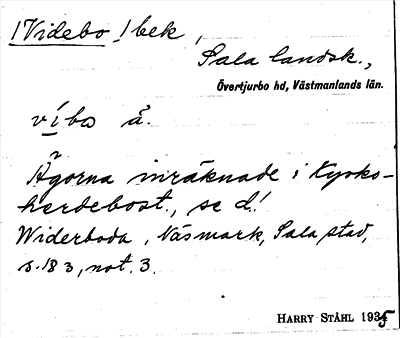 ! Videbo ! bek,
Sala landsk.,
Övertjurbo hd, Västmanlands län.
vi̱bo å.
Ägorna inräknade i Kyrko-
herdebost., se d!
Widerboda, Näsmark, Sala stad,
s. 183, not. 3.
HARRY STÅHL 1935